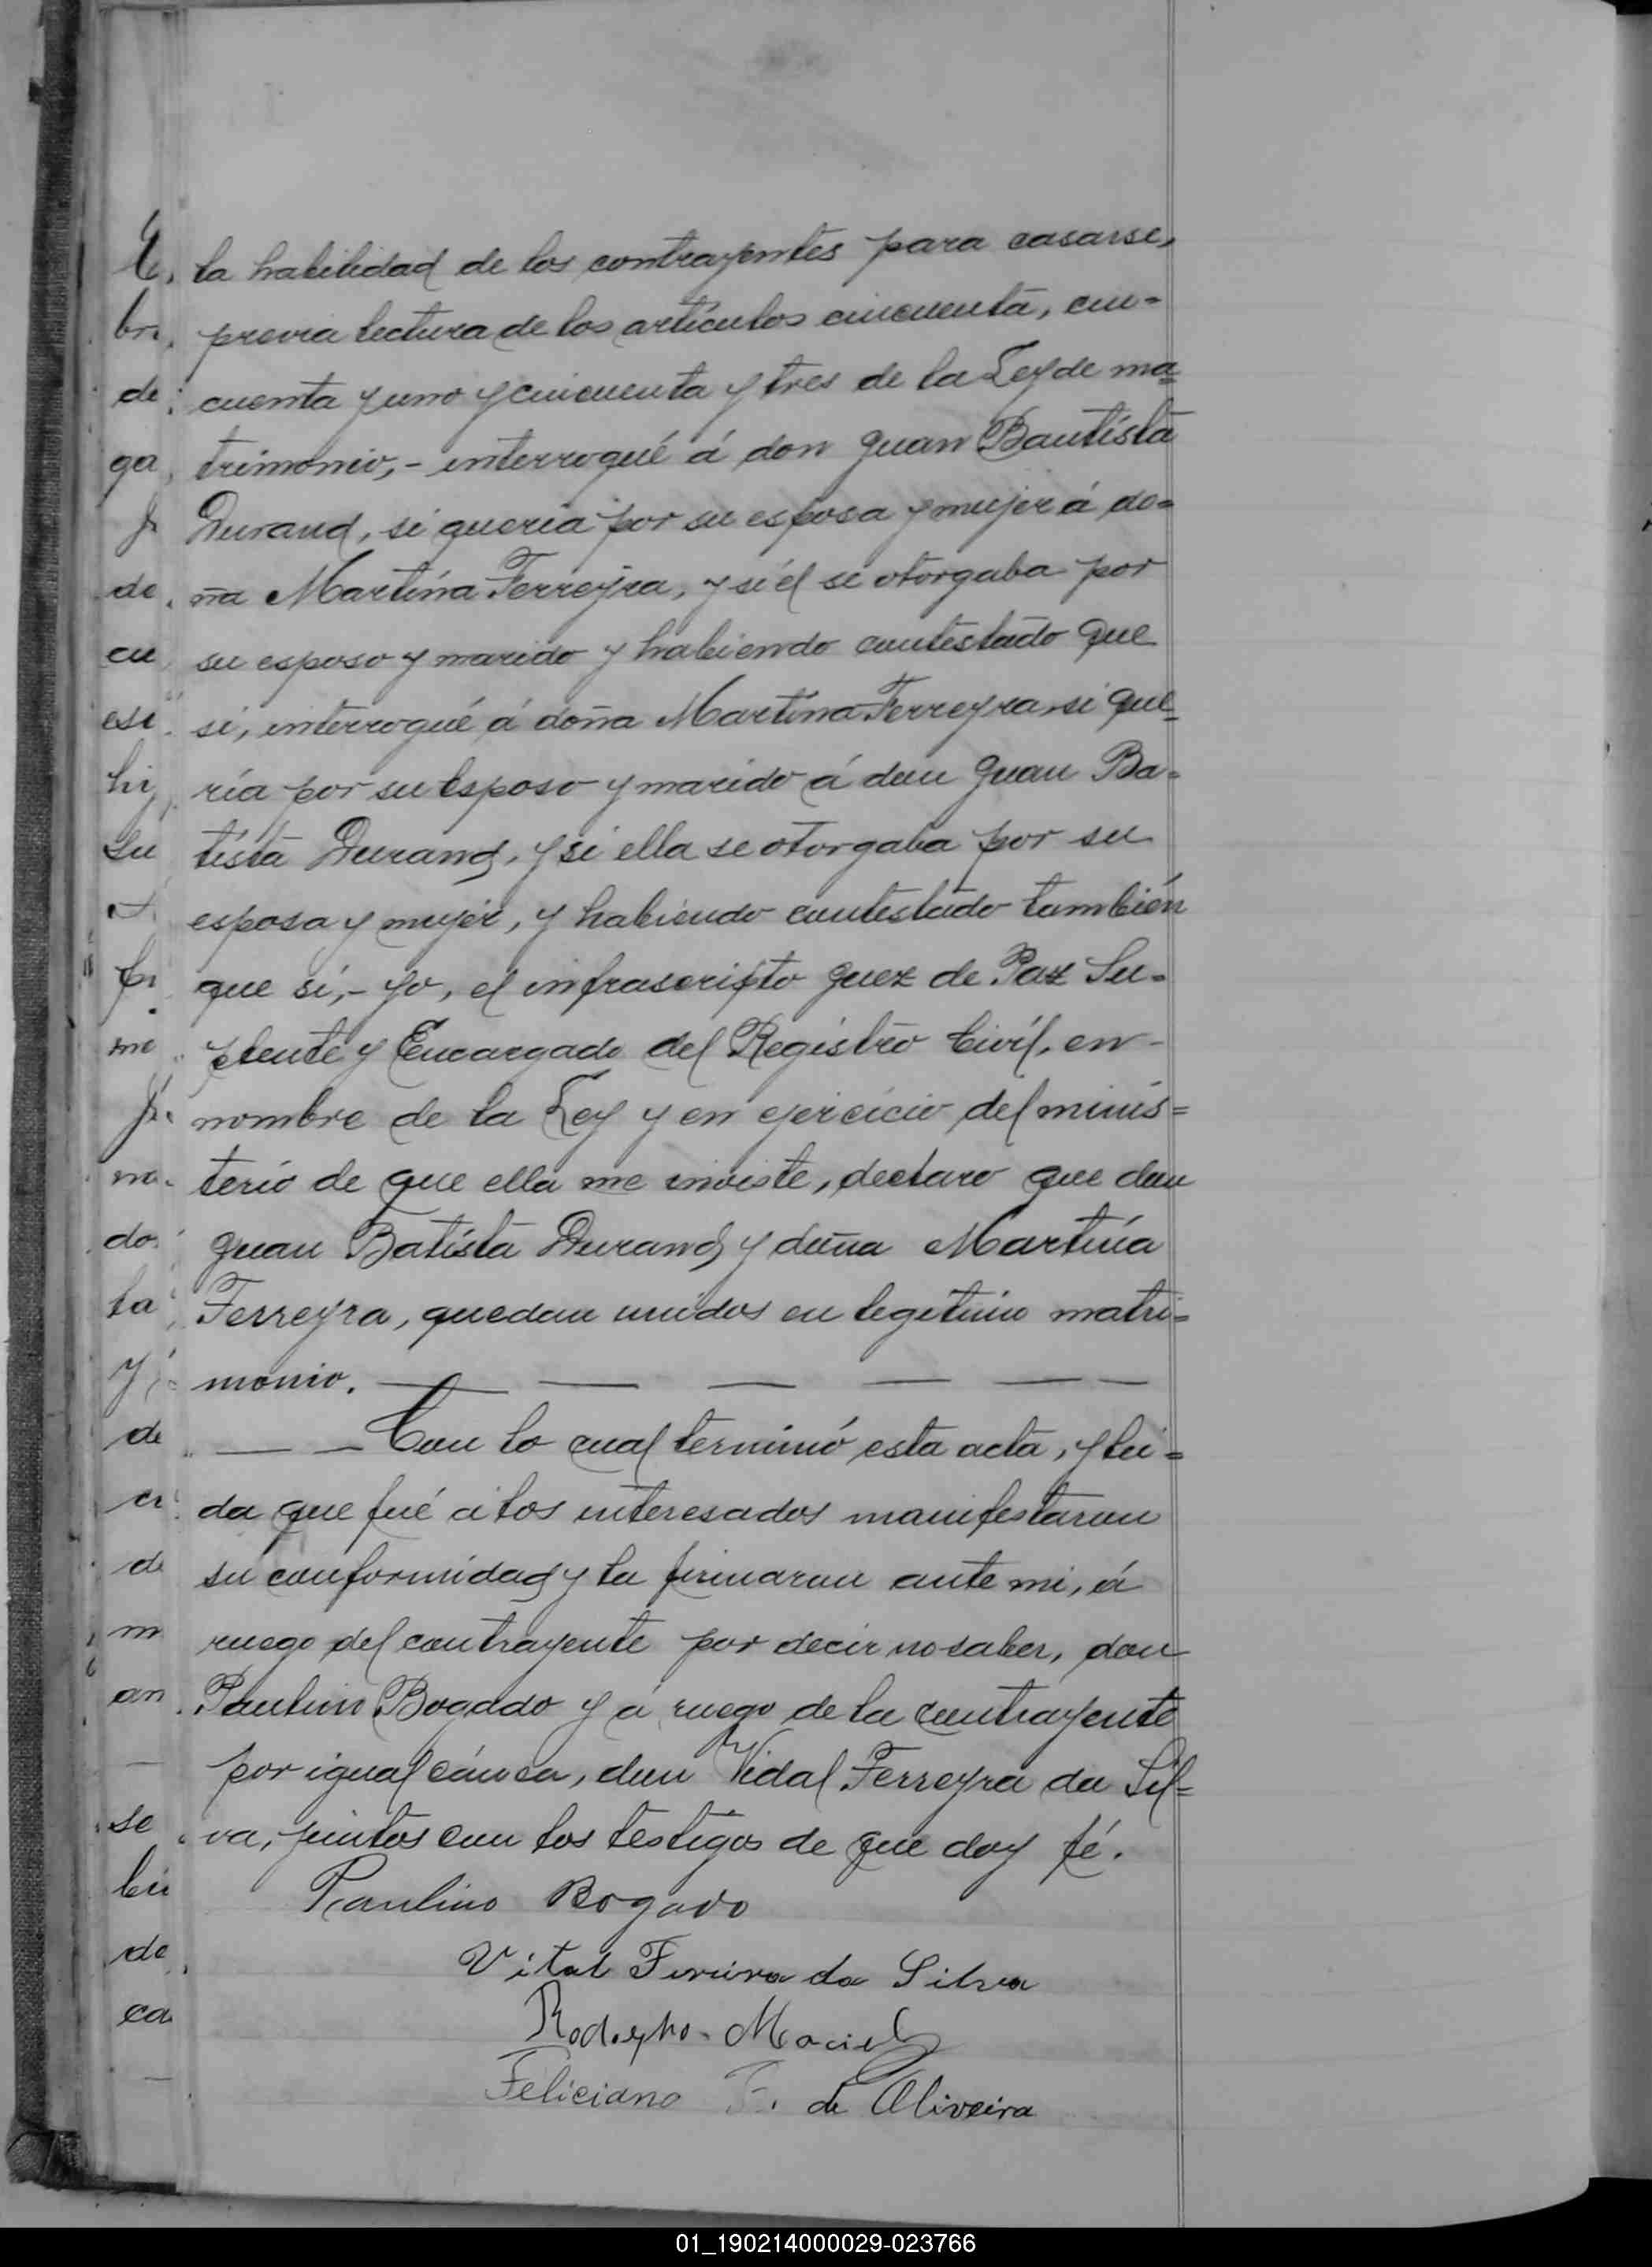 la habilidad de los contrayentes para casarse,
previa lectura de los artículos cincuenta, cin-
cuenta y uno y cincuenta y tres de la Ley de ma-
trimonio,- interrogué á don Juan Bautista
Durand, si quería por su esposa y mujer á do-
ña Martína Ferreyra, y si él se otorgaba por
su esposo y marido y habiendo contestado que
si, interrogué á doña Martina Ferreyra, si que-
ría por su esposo y marido á don Juan Ba-
tista Durand, y si ella se otorgaba por su
esposa y mujer, y habiendo contestado también
que si,- yo, el infrascripto Juez de Paz Su-
plente y Encargado del Registro Civil, en
nombre de la Ley y en ejercicio del minis-
terio de que ella me inviste, declaro que don
Juan Batista Durand y doña Martína
Ferreyra, quedan unidos en legítimo matri-
monio. — — — — —
— — Con lo cual terminó esta acta, y lei-
da que fué á los interesados manifestaron
su conformidad y la firmaron ante mi, á
ruego del contrayente por decir no saber, don
Paulino Bogado y á ruego de la contrayente
por igual causa, don Vidal Ferreyra da Sil-
va, juntos con los testigos de que doy fé.
Paulino Bogado
Vital Fereira da Silva
Rodolpho Maciel
Feliciano F. de Oliveira
bri
de
ga
de
cu
esi
hi
su
me
do
la
y
de
de
m
an
se
de
ca
01_190214000029-023766